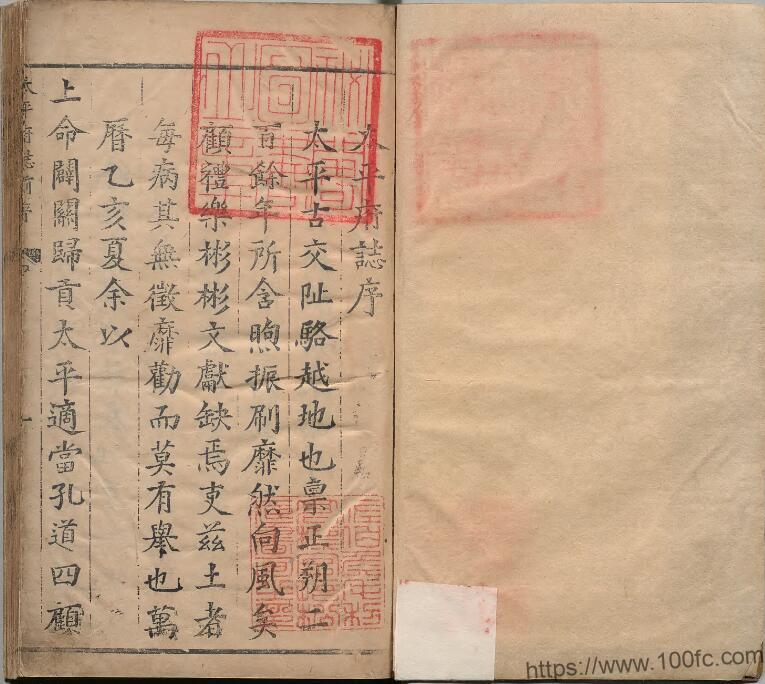 太平府誌序
太平古交阯駱越地也稟正朔二
百餘年所含煦振刷靡然向風矣
顧禮樂彬彬文獻缺焉吏茲土者
每病其無徵靡勸而莫有舉也萬
曆乙亥夏余以
上命闢關歸貢太平適當孔道四顧
太平府誌前序
一
https://www.100fc.com